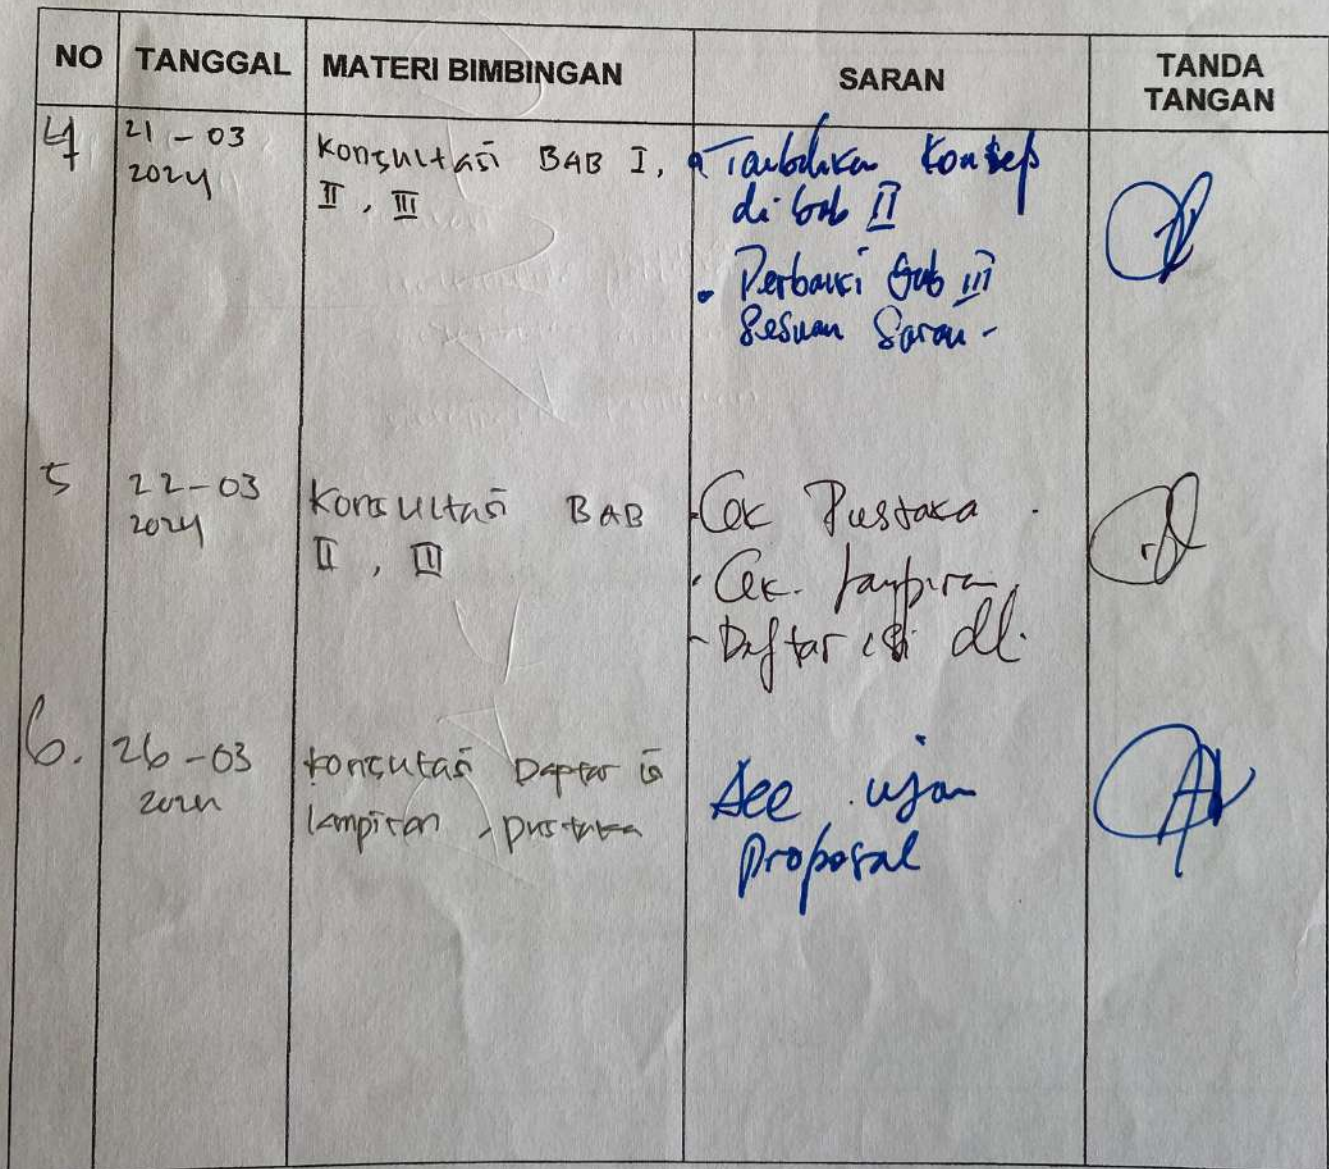 NO TANGGAL MATERI BIMBINGAN SARAN TANDA TANGAN
4 21-03 2024
Konsultasi BAB I,
II, III
• Tambahkan Konsep
di bab II
• Perbaiki bab III
Sesuai Saran -
5 22-03 2024
Konsultasi BAB
II, III
- Cek Pustaka
- Cek. lampiran
- Daftar isi dll.
6. 26-03 2024
Konsutasi Daptar isi
lampiran, pustaka
Acc ujian
proposal